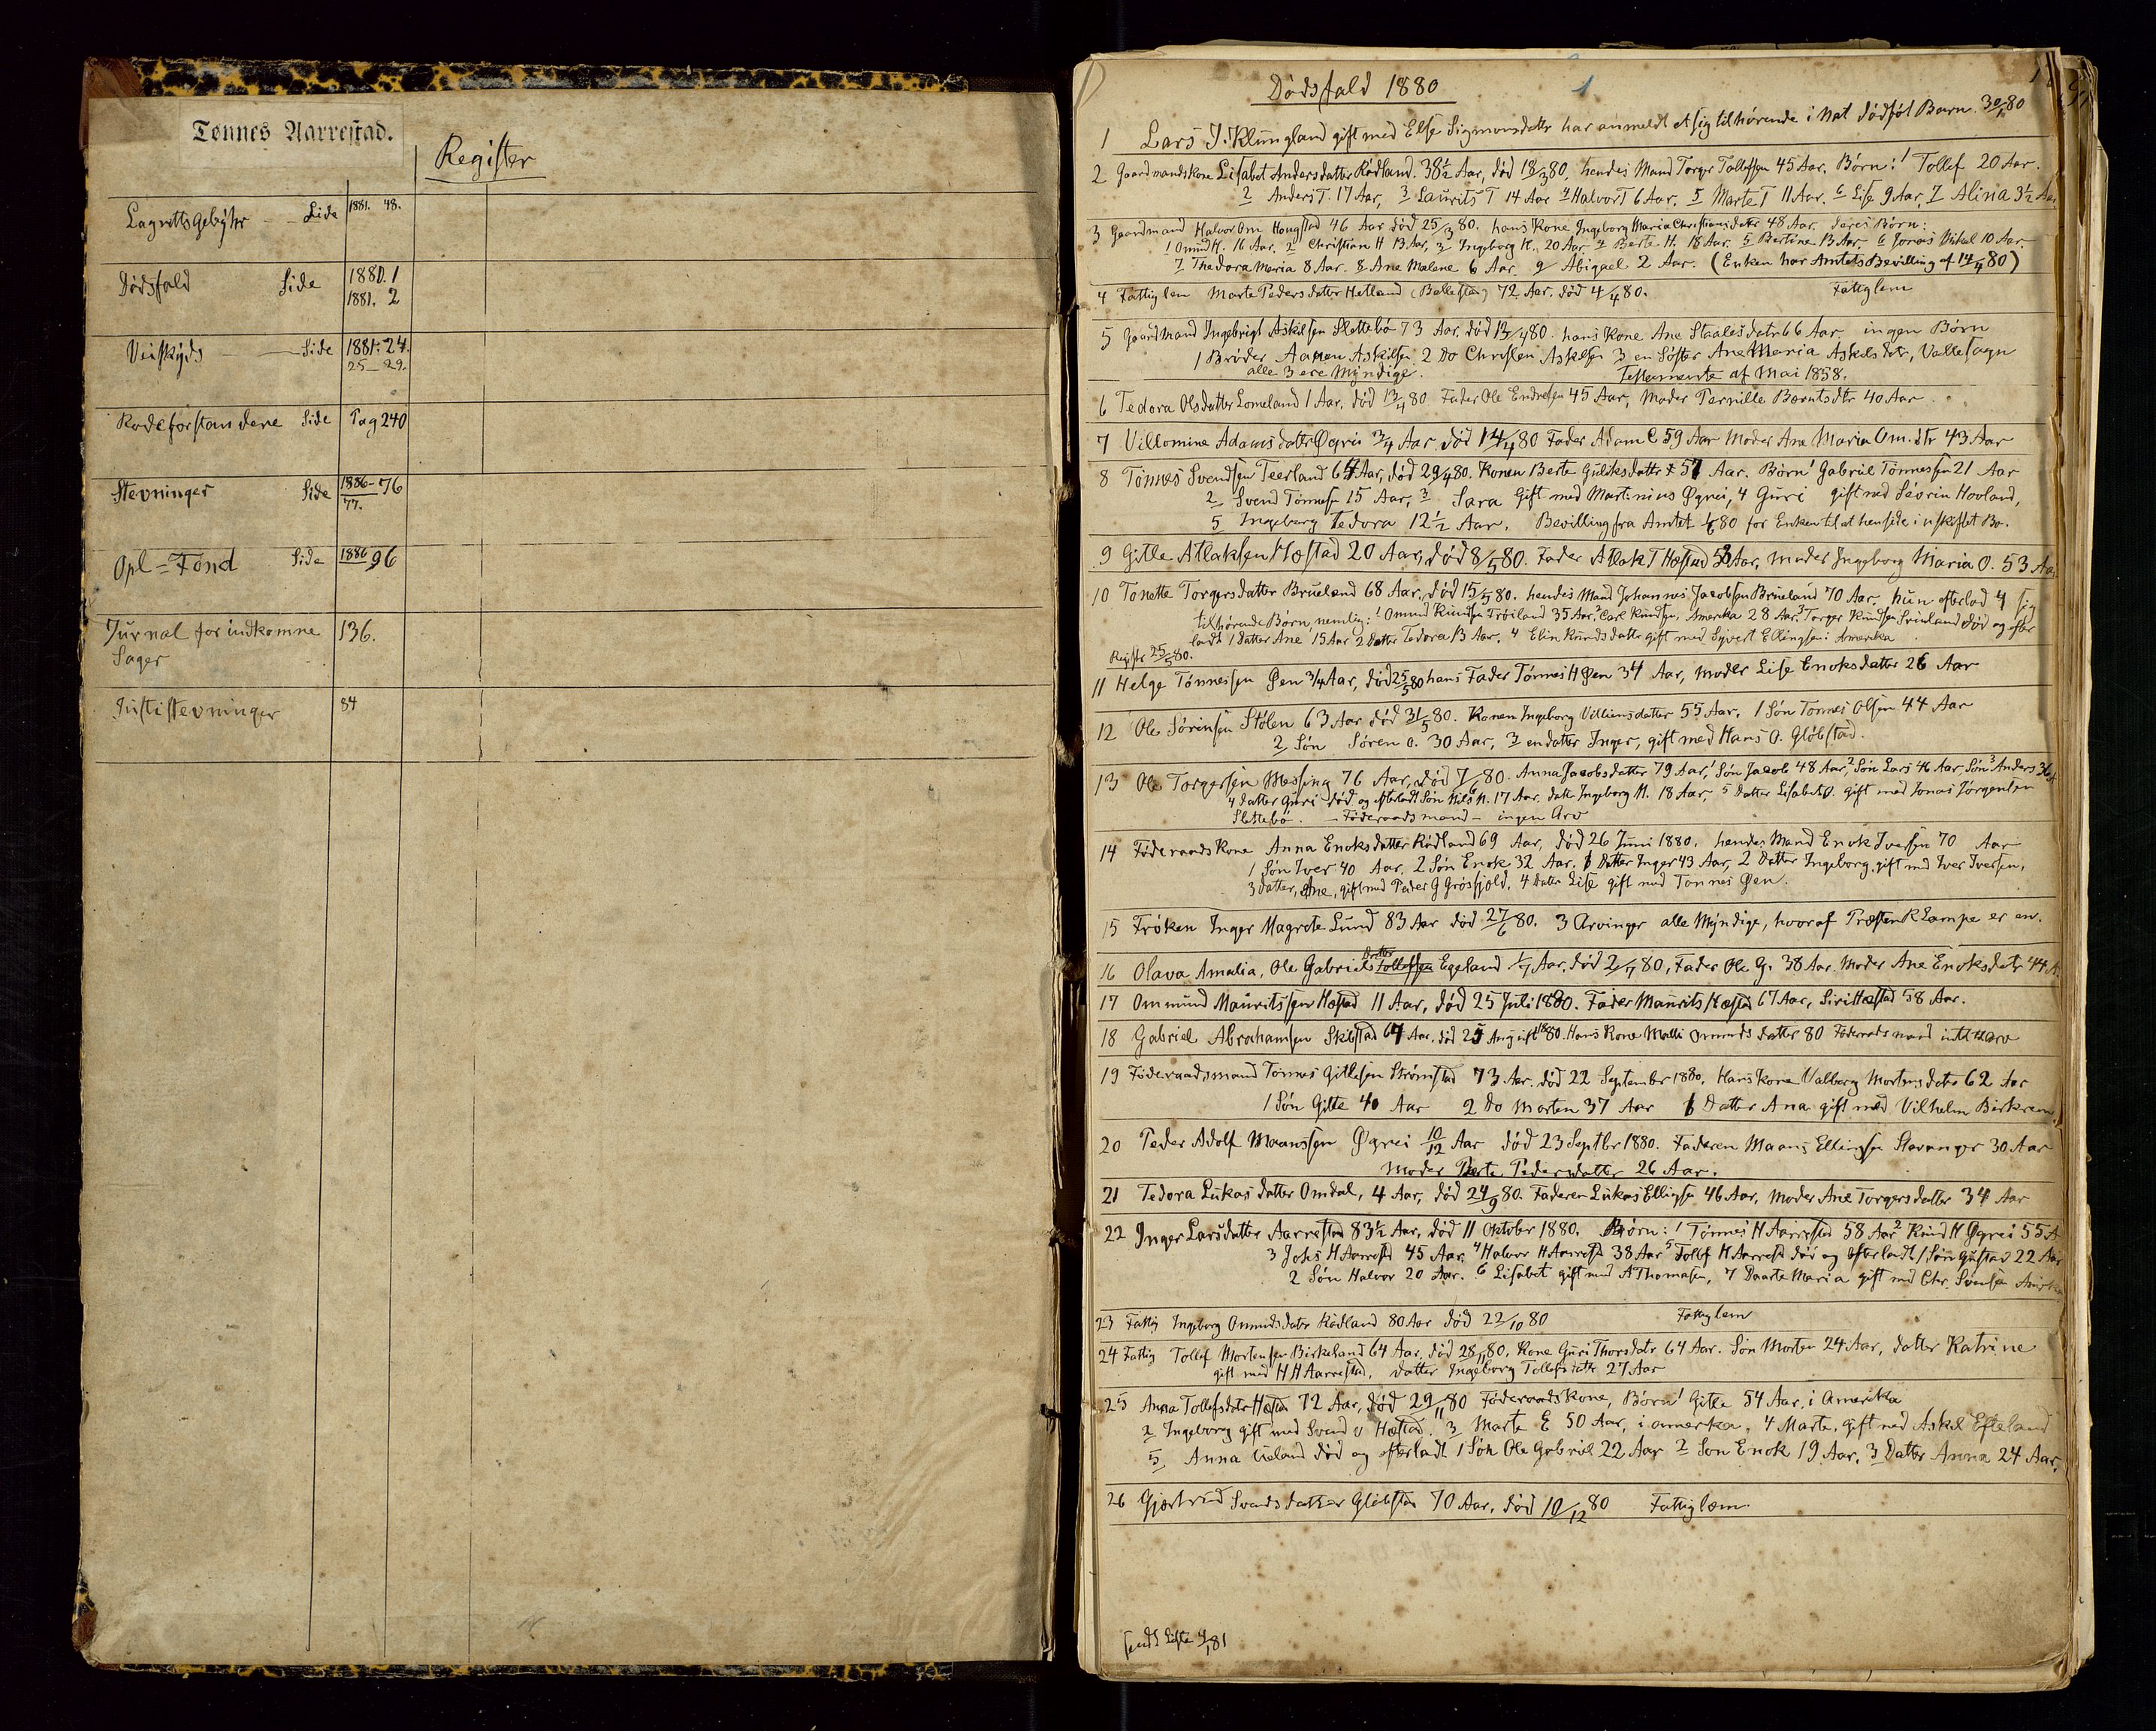 Tønnes Aarrestad.
Register
Lagrettsgebyhr - - Side 1881. 48.
Dødsfald Side 1880. 1
1881. 2
Veiskyds - - Side 1881: 24.
25-29.
Rodeforstandere Side Pag 240
Stevninger Side 1886-76
77.
Opl=Fond Side 1886 96
Jurnal for indkomne 136.
Sager
Justistevninger 84
1
Dødsfald 1880
1 Lars J. Klungland gift med Else Sigmonsdatr har anmeldt et sig tilhørende i Nat dødføt Barn 80
2 Gaardmandskone Lisabet Andersdatter Rødland. 38½ Aar, død 18/3 80, hendes Mand Torger Tollefsen 45 Aar. Børn: 1 Tollef 20 Aar.
2 Anders T. 17 Aar, 3 Laurits T 14 Aar 4 Halvor T 6 Aar. 5 Marte T 11 Aar. 6 Lise 9 Aar, 7 Alina 3½ Aar
3 Gaardmand Halvor Om Hougstad 46 Aar død 25/3 80. hans Kone Ingeborg Maria Christiansdatr 48 Aar. deres Børn:
1 Omund H. 16 Aar. 2 Christian H 13 Aar, 3 Ingeborg H. 20 Aar 4 Berte H. 18 Aar. 5 Bertine 13 Aar. 6 Jonas Mikal 10 Aar.
7 Thedora Maria 8 Aar. 8 Ane Malene 6 Aar. 9 Abigael 2 Aar. (Enken har Amtets Bevilling af 14/4 80)
4 Fattiglem Marte Pedersdatter Hetland (Bellestad) 72 Aar. død 4/4 80. Fattiglem
5 Gaardmand Ingebrigt Askilsen Slettebø 73 Aar. død 13/4 80. hans Kone Ane Staalesdatr 66 Aar ingen Børn
1 Brøder Aanen Askilsen 2 Do Christen Askelsen 3 en Søster Ane Maria Askelsdatr,
alle 3 ere Myndige. Testamente af Mai 1858.
6 Tedora Olsdatter Lomeland 1 Aar. død 13/4 80 Fader Ole Endresen 45 Aar, Moder Pernille Berntsdtr 40 Aar
7 Villomine Adamsdattr Øgrei 3/4 Aar. død 14/4 80 Fader Adam C 59 Aar Moder Ane Maria Om.dtr 43 Aar
8 Tønnes Svendsen Teerland 64 Aar, død 29/4 80. Konen Berte Guliksdattr 57 Aar. Børn 1 Gabriel Tønnessen 21 Aar
2 Svend Tønnesen 15 Aar, 3 Sara gift med Martinius Øgrei, 4 Guri gift med Sevrin Hovland,
5 Ingeborg Tedora 12½ Aar. Bevilling fra Amtet 80 for Enken til at hensidde i uskiftet Bo.
9 Gitle Atlaksen Hæstad 20 Aar, død 8/5 80. Fader Atlak T Hæstad 53 Aar, Moder Ingeborg Maria O. 53 Aar
10 Tonette Torgersdatter Brueland 68 Aar, død 15/5 80. hendes Mand Johannes Jacobsen Brueland 70 Aar. hun efterlod 4 sig
tilhørende Børn nemlig: 1 Omund Knudsen Frøiland 35 Aar. 2 Carl Knudsen, Amerika 28 Aar. 3 Torger Knudsen Svinland død og efter
ladt 1 datter Ane 15 Aar 2 datter Tedora 13 Aar. 4 Elin Knudsdatter gift med Syvert Ellingsen i Amerika
Registr 25/5 80.
11 Helge Tønnessen Øen 3/4 Aar, død 25/5 80 hans Fader Tønnes H Øen 34 Aar, Moder Lise Enoksdatter 26 Aar
12 Ole Sørensen Stølen 63 Aar død 31/5 80. Konen Ingeborg Villumsdatter 55 Aar. 1 Søn Tønnes Olsen 44 Aar
2 Søn Søren O. 30 Aar, 3 en datter Inger, gift med Hans O. Gløbstad.
13 Ole Torgersen Messing 76 Aar, død 7/6 80. Anna Jacobsdatter 79 Aar, 1 Søn Jacob 48 Aar, 2 Søn Lars 46 Aar, Søn 3 Anders 36
4 datter Guri død og efterladt Søn Nils N. 17 Aar. datr Ingeborg N. 18 Aar, 5 Datter Lisabet O. gift med Jonas Jørgensen
Slettebø. - Føderaadsmand - ingen Arv
14 Føderaadskone Anna Enoksdatter Rødland 69 Aar, død 26 Juni 1880. hendes Mand Enok Iversen 70 Aar
1 Søn Iver 40 Aar. 2 Søn Enok 32 Aar. 1 Datter Inger 43 Aar, 2 Datter Ingeborg, gift med Iver Iversen,
3 datter, Ane, gift med Peder G Grøsfjeld, 4 datter Lise gift med Tønnes Øen.
15 Frøken Inger Magrete Lund 83 Aar død 27/6 80. 3 Arvinger alle Myndige, hvoraf Presten R Lampe er en.
16 Olava Amalia, Ole Gabriels Datter Tollefsen Egeland 1/7 Aar, død 2/7 80, Fader Ole G. 38 Aar. Moder Ane Enoksdatr 44 A
17 Ommund Mauritssen Hæstad 11 Aar, død 25 Juli 1880. Fader Maurits Hæstad 67 Aar, Siri Hæstad 58 Aar.
18 Gabriel Abrahamsen Skibstad 64 Aar, død 25 August 1880. Hans Kone Malli Omundsdatter 80 Føderaadsmand intet arv
19 Føderaadsmand Tønnes Gitlesen Strømstad 73 Aar. død 22 September 1880. Hans Kone Valberg Mortensdatr 62 Aar
1 Søn Gitle 40 Aar 2 Do Morten 37 Aar 1 Datter Ana gift med Vilhelm Birkrem
20 Peder Adolf Maanssen Øgrei 10/12 Aar død 23 Septbr 1880. Faderen Maans Ellingsen Stavanger 30 Aar
Moder Berte Pedersdatter 26 Aar.
21 Tedora Lukasdatter Omdal, 4 Aar, død 24/9 80. Faderen Lukas Ellingsen 46 Aar, Moder Ane Torgersdatter 34 Aar
22 Inger Larsdatter Aarrestad 83½ Aar, død 11 Oktober 1880. Børn: 1 Tønnes H Aarrestad 58 Aar 2 Knud H Øgrei 55 A
3 Johs H Aarrestd 45 Aar. 4 Halvor H Aarrestd 38 Aar 5 Tollef H Aarrestd død og efterladt 1 Søn Gustad 22 Aar
2 Søn Halvor 20 Aar. 6 Lisabet gift med A Thomasen, 7 Daarte Maria gift med Chr. Svensen
23 Fattig Ingeborg Omundsdatr Rødland 80 Aar død 22/10 80 Fattiglem
24 Fattig Tollef Mortensen Birkeland 64 Aar. død 28/11 80. Kone Guri Thorsdatr 64 Aar. Søn Morten 24 Aar, datter Katrine
gift med H H Aarrestad, datter Ingeborg Tollefsdatr 27 Aar
25 Anna Tollefsdatr Hæstad 72 Aar, død 29/11 80 Føderaadskone, Børn 1 Gitle 54 Aar, i Amerika
2 Ingeborg gift med Svend O Hæstad. 3 Marte E 50 Aar, i amerka, 4 Marte, gift med Askel Efteland
5 Anna Ueland død og efterladt 1 Søn Ole Gabriel 22 Aar 2 Søn Enok 19 Aar. 3 Datter Anna 24 Aar,
26 Gjertrud Svendsdatter Gløbstad 70 Aar, død 10/12 80 Fattiglem
sendt Liste 4/1 81